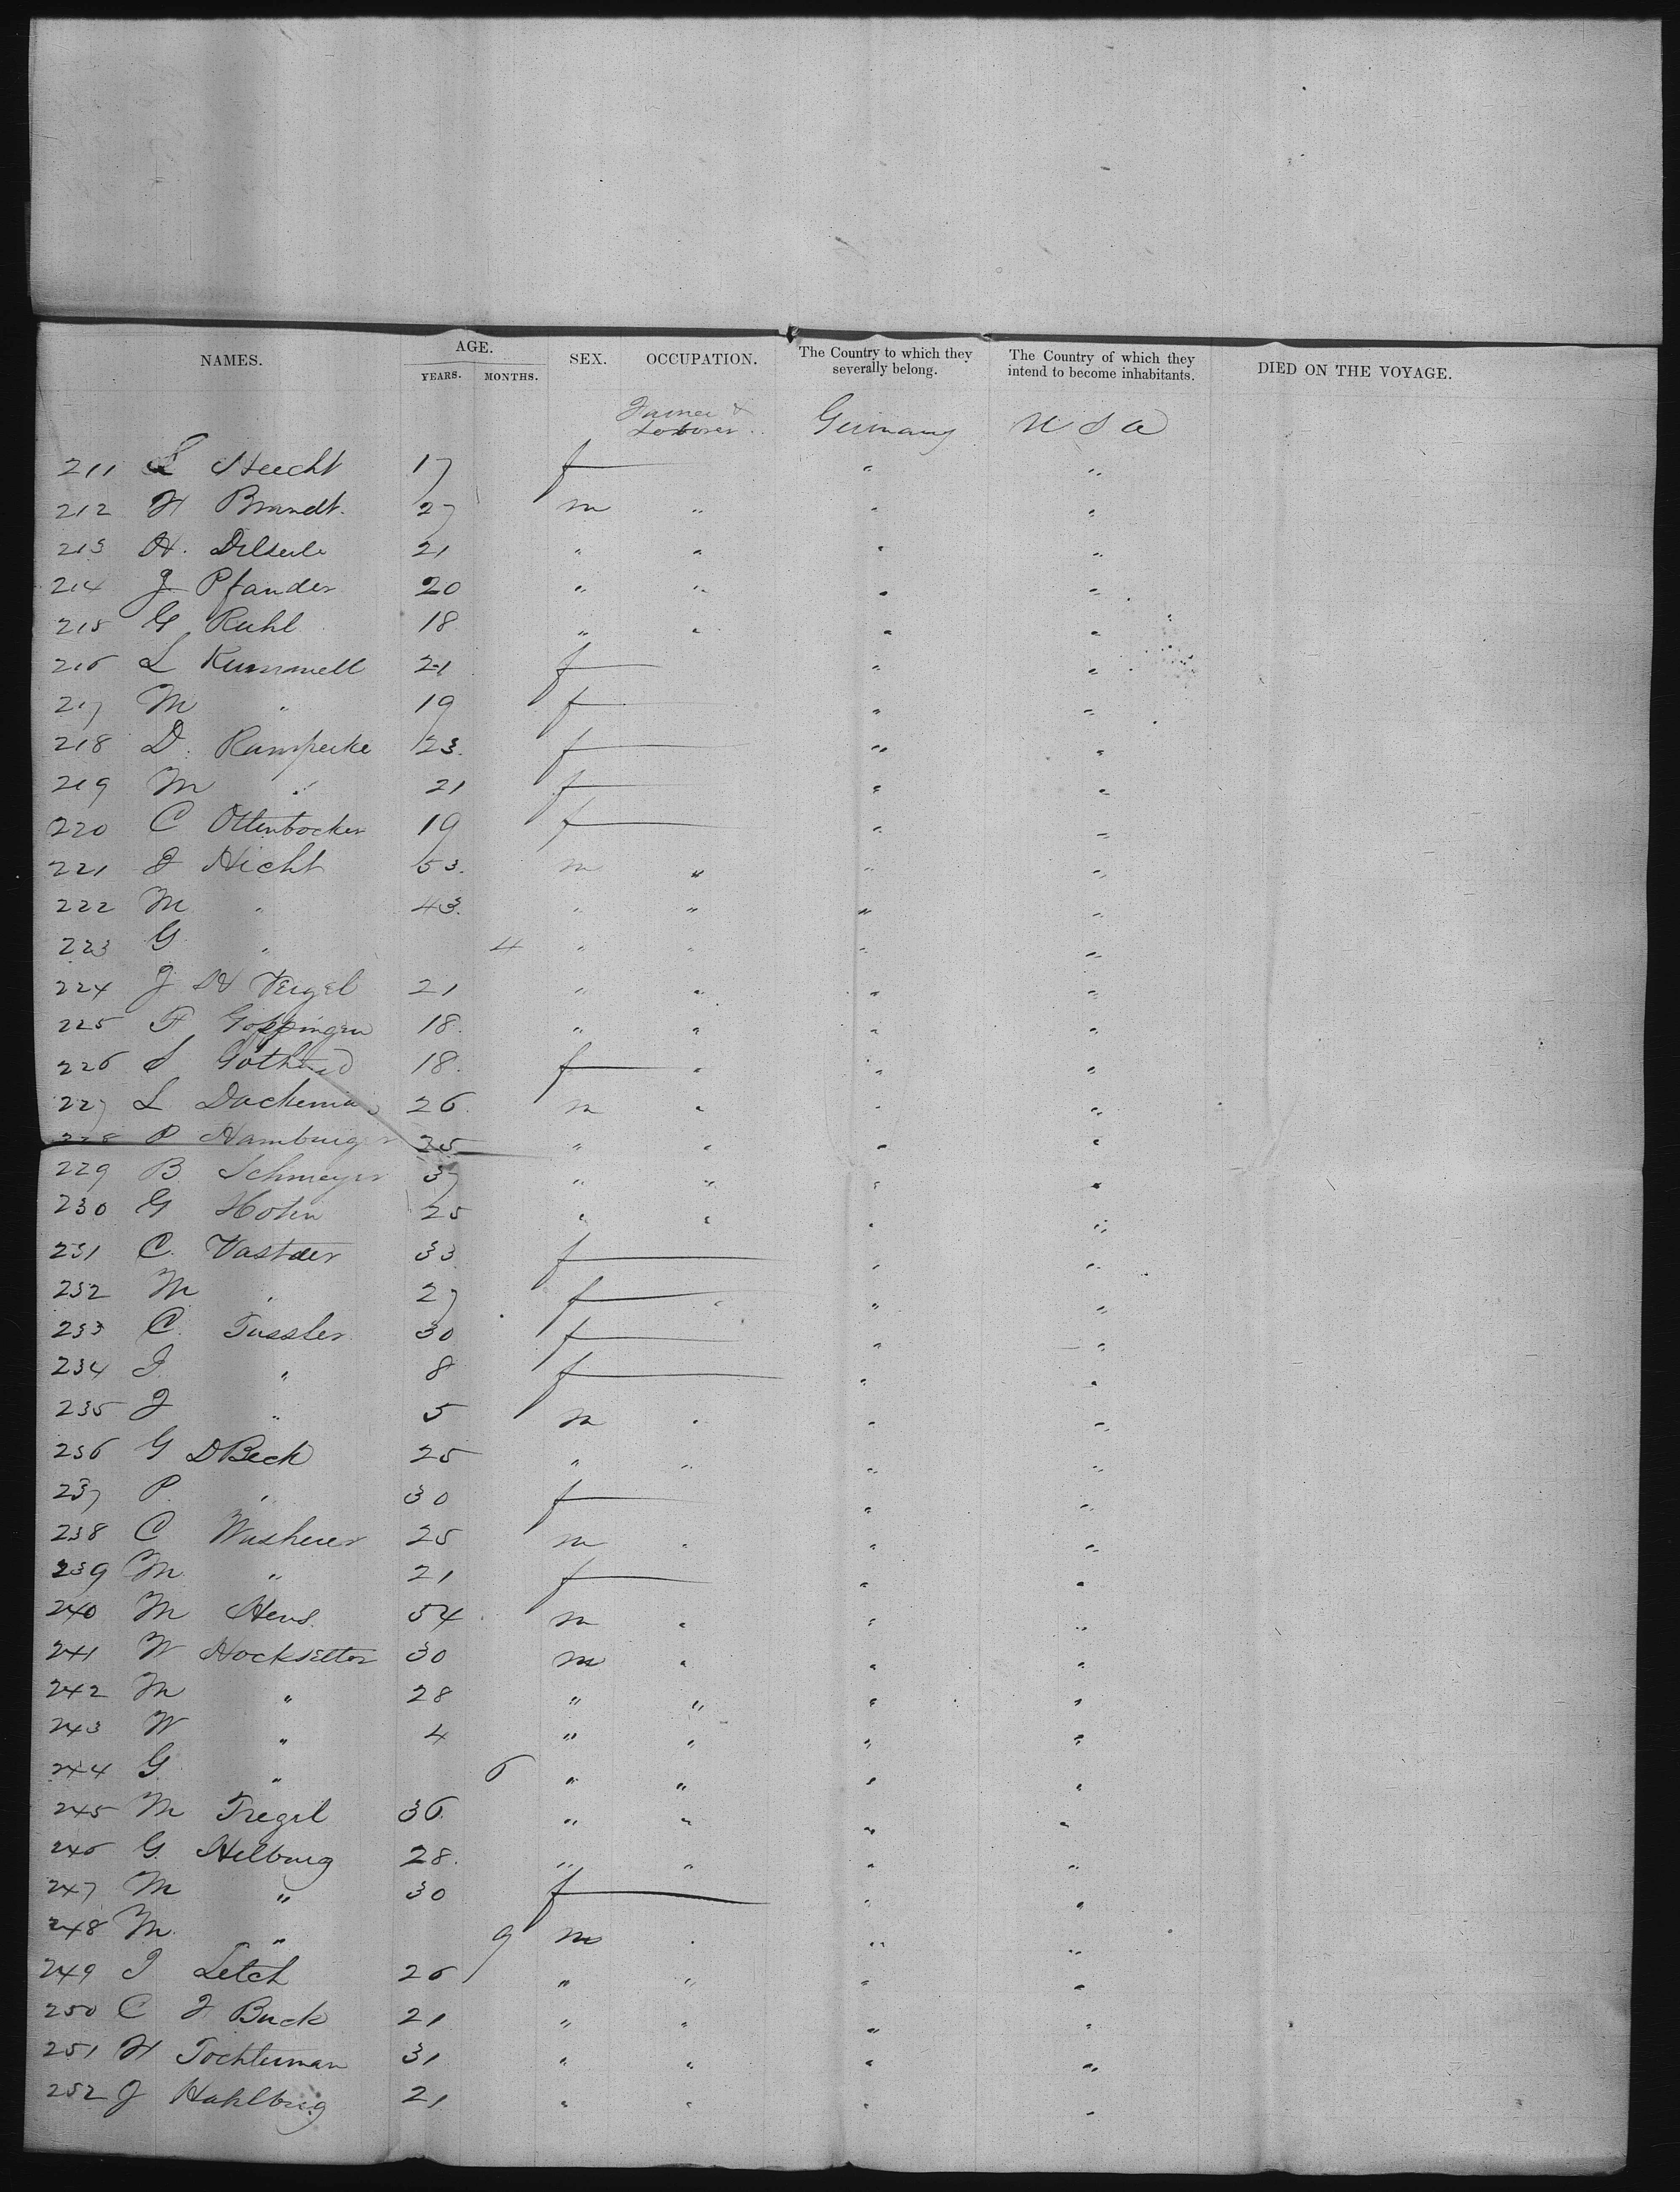 NAMES. AGE. SEX. OCCUPATION. The Country to which they severally belong. The Country of which they intend to become inhabitants. DIED ON THE VOYAGE.
YEARS. MONTHS.
Farmer & Laborer Germany U S A
211 L Hecht 17 f " "
212 H Brandt. 27 m " " "
213 H. 21 " " " "
214 J Pfander 20 " " " "
215 G Ruhl 18 " " " "
216 L Kummell 21 f " "
217 M " 19 f " "
218 D. 23. f " "
219 M " 21 f " "
220 C Ottenbocker 19 f " "
221 Hicht 53. m " " "
222 M " 43. " " " "
223 G " 4 " " " "
224 J H Vergel 21 " " " "
225 F Goppingen 18. " " " "
226 S 18. f " " "
227 L 26. m " " "
228 P Hamburger 25 " " " "
229 B. Schmeyer 37 " " " "
230 G Hohn 25 " " " "
231 C. Vastder 33 f " "
232 M " 27 f " " "
233 C. Tussler 30 f " "
234 J. " 8 f " "
235 J " 5 m " " "
236 G D Beck 25 " " " "
237 P. " 30 f " "
238 C Washerer 25 m " " "
239 M " 21 f " "
240 M Hens. 54 m " " "
241 W Hocksetter 30 m " " "
242 M " 28 " " " "
243 W " 4 " " " "
244 G " 6 " " " "
245 M Tregel 36. " " " "
246 G. Helburg 28. " " " "
247 M " 30 f " "
248 M. " 9 m " " "
249 J Letch 26 " " " "
250 C F Buck 21 " " " "
251 H Tochterman 31 " " " "
252 J Hahlbrig 21 " " " "